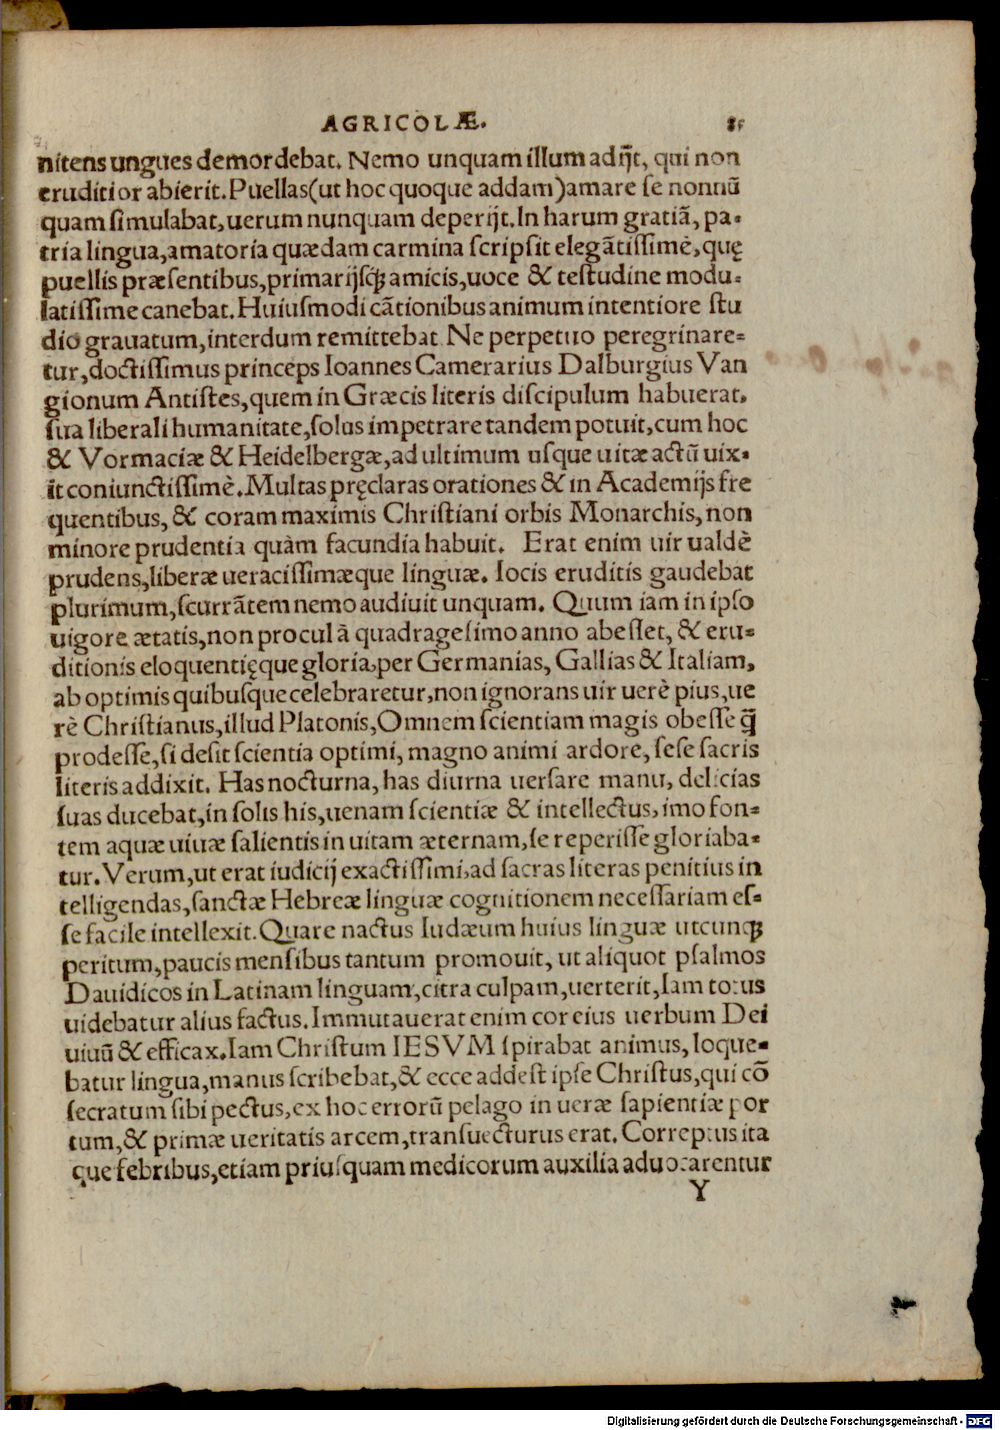 AGRICOLÆ. 85
nitens ungues demordebat. Nemo unquam illum adijt, qui non
eruditior abierit. Puellas (ut hoc quoque addam) amare se nonnũ
quam simulabat, uerum nunquam deperijt. In harum gratiã, pa-
tria lingua, amatoria quædam carmina scripsit elegãtissimè, quę
puellis præsentibus, primarijsq́; amicis, uoce & testudine modu-
latissime canebat. Huiusmodi cãtionibus animum intentiore stu
dio grauatum, interdum remittebat. Ne perpetuo peregrinare-
tur, doctissimus princeps Ioannes Camerarius Dalburgius Van
gionum Antistes, quem in Græcis literis discipulum habuerat,
sua liberali humanitate, solus impetrare tandem potuit, cum hoc
& Vormaciæ & Heidelbergæ, ad ultimum usque uitæ actũ uix-
it coniunctissimè. Multas pręclaras orationes & in Academijs fre
quentibus, & coram maximis Christiani orbis Monarchis, non
minore prudentia quàm facundia habuit. Erat enim uir ualdè
prudens, liberæ ueracissimæque linguæ. Iocis eruditis gaudebat
plurimum, scurrãtem nemo audiuit unquam. Quum iam in ipso
uigore ætatis, non procul à quadragesimo anno abesset, & eru-
ditionis eloquentięque gloria, per Germanias, Gallias & Italiam,
ab optimis quibusque celebraretur, non ignorans uir uerè pius, ue
rè Christianus, illud Platonis, Omnem scientiam magis obesse q̃
prodesse, si desit scientia optimi, magno animi ardore, sese sacris
literis addixit. Has nocturna, has diurna uersare manu, delicias
suas ducebat, in solis his, uenam scientiæ & intellectus, imo fon-
tem aquæ uiuæ salientis in uitam æternam, se reperisse gloriaba-
tur. Verum, ut erat iudicij exactissimi, ad sacras literas penitius in
telligendas, sanctæ Hebreæ linguæ cognitionem necessariam es-
se facile intellexit. Quare nactus Iudæum huius linguæ utcunq;
peritum, paucis mensibus tantum promouit, ut aliquot psalmos
Dauidicos in Latinam linguam, citra culpam, uerterit, Iam totus
uidebatur alius factus. Immutauerat enim cor eius uerbum Dei
uiuũ & efficax. Iam Christum IESVM spirabat animus, loque-
batur lingua, manus scribebat, & ecce addest ipse Christus, qui cõ
secratum sibi pectus, ex hoc errorũ pelago in ueræ sapientiæ por
tum, & primæ ueritatis arcem, transuecturus erat. Correptus ita
que febribus, etiam priusquam medicorum auxilia aduocarentur
Y
Digitalisierung gefördert durch die Deutsche Forschungsgemeinschaft - DFG